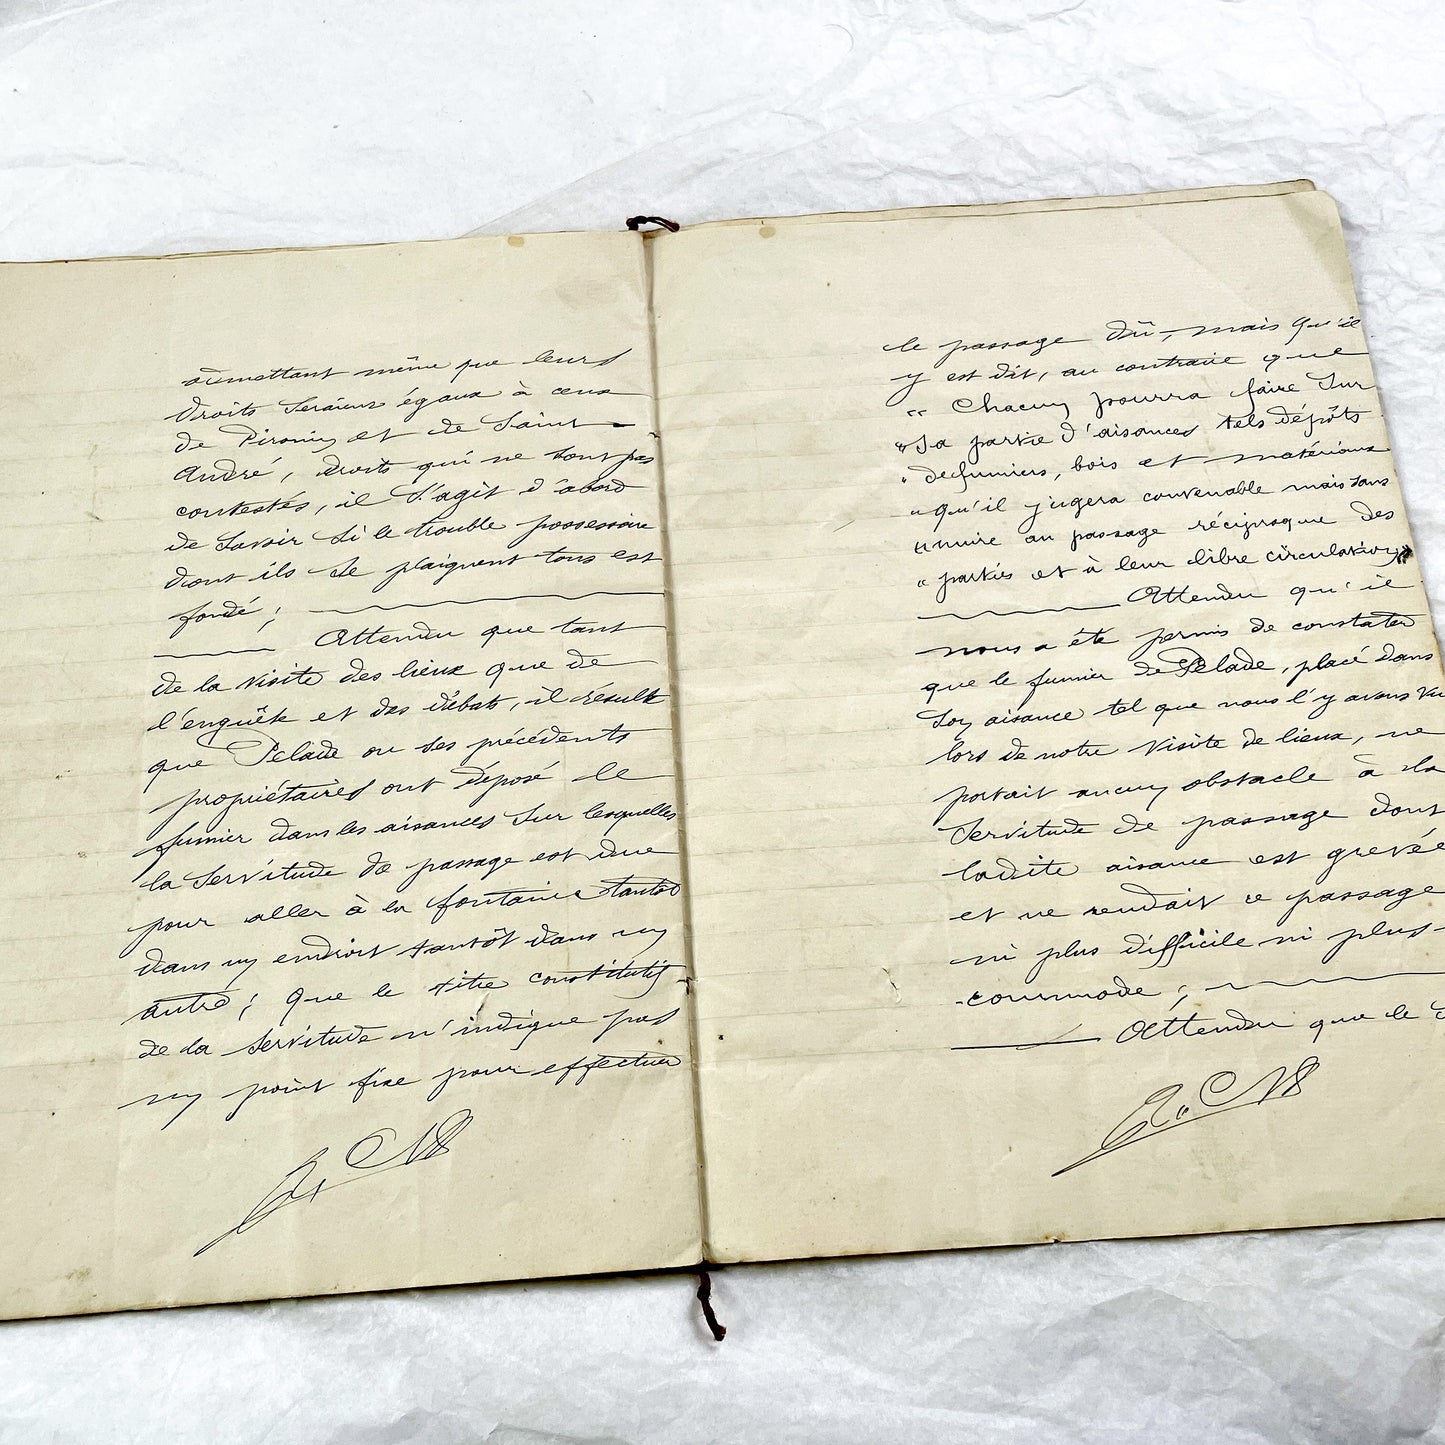 admettant même que leurs
droits seraient égaux à ceux
de Pironin et de Saint
André, droits qui ne sont pas
contestés, il s'agit d'abord
de savoir si le trouble possessoire
dont ils se plaignent tous est
fondé;
Attendu que tant
de la visite des lieux que de
l'enquête et des débats, il résulte
que Pelade ou ses précédents
propriétaires ont déposé le
fumier dans les aisances sur lesquelles
la servitude de passage est due
pour aller à la fontaine tantôt
dans un endroit tantôt dans un
autre; que le titre constitutif
de la servitude n'indique pas
un point fixe pour effectuer
le passage dû, mais qu'il
y est dit, au contraire que
"Chacun pourra faire sur
"sa partie d'aisances tels dépôts
"de fumiers, bois et matériaux
"qu'il jugera convenable mais sans
"nuire au passage réciproque des
"parties et à leur libre circulation"
Attendu qu'il
nous a été permis de constater
que le fumier de Pelade, placé dans
son aisance tel que nous l'y avons vu
lors de notre visite de lieux, ne
portait aucun obstacle à la
servitude de passage dont
ladite aisance est grevée
et ne rendait ce passage
ni plus difficile ni plus
commode;
Attendu que le